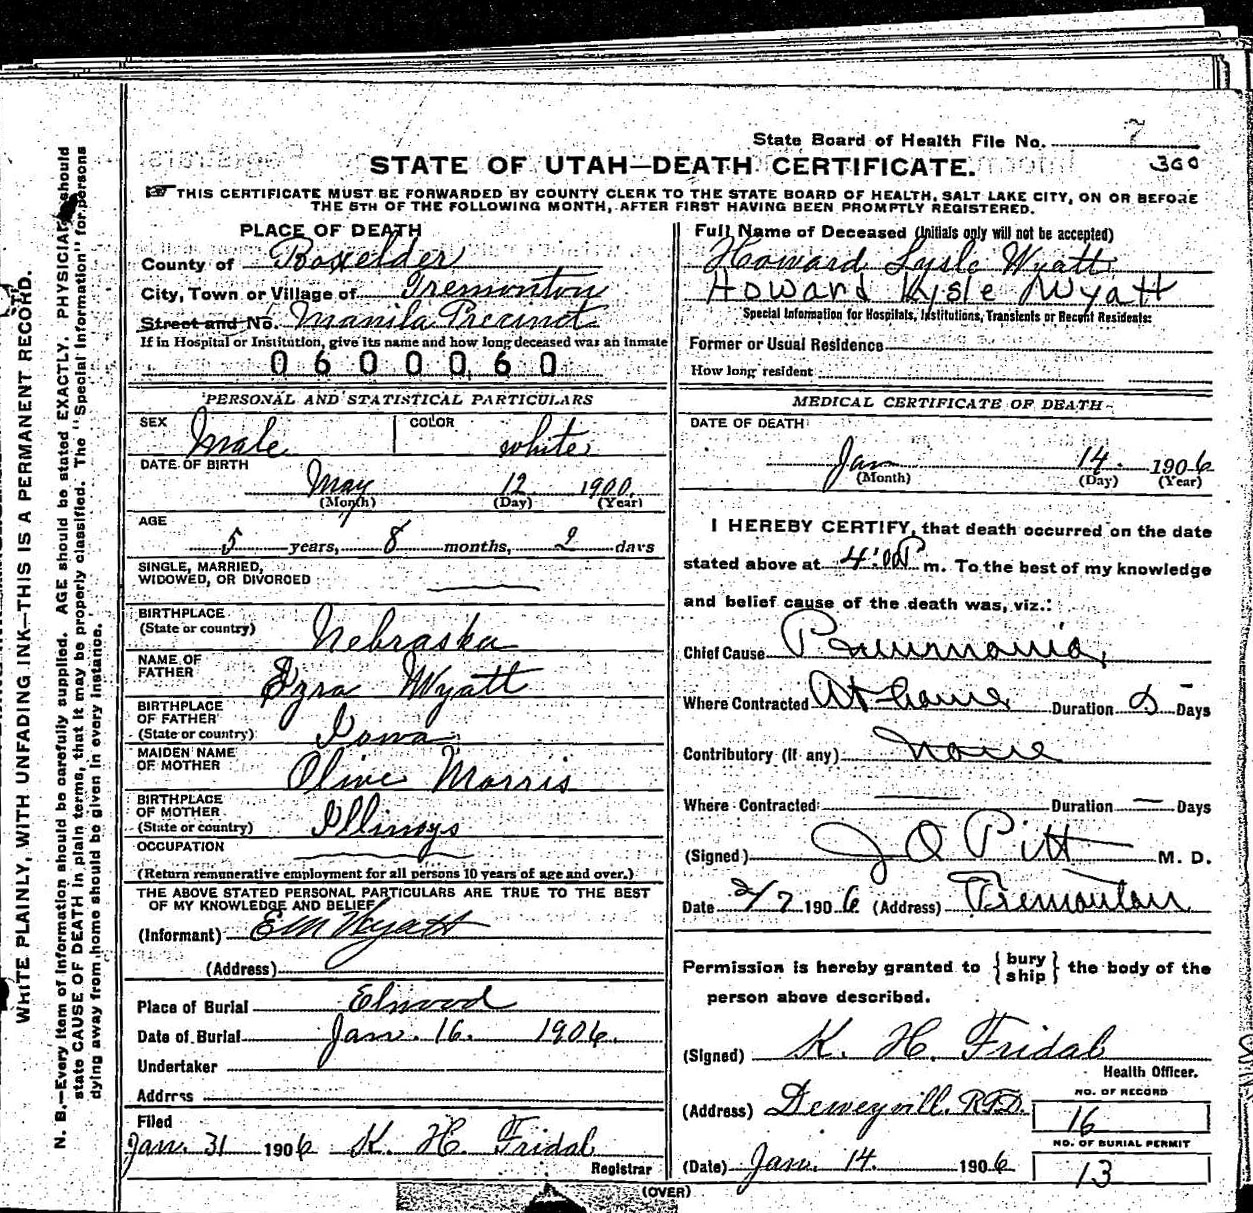 State Board of Health File No. 7
360
STATE OF UTAH—DEATH CERTIFICATE.
THIS CERTIFICATE MUST BE FORWARDED BY COUNTY CLERK TO THE STATE BOARD OF HEALTH, SALT LAKE CITY, ON OR BEFORE
THE 5TH OF THE FOLLOWING MONTH, AFTER FIRST HAVING BEEN PROMPTLY REGISTERED.
WRITE PLAINLY, WITH UNFADING INK—THIS IS A PERMANENT RECORD.
N. B.—Every item of information should be carefully supplied. AGE should be stated EXACTLY. PHYSICIANS should
state CAUSE OF DEATH in plain terms, that it may be properly classified. The "Special Information" for persons
dying away from home should be given in every instance.
PLACE OF DEATH
County of Boxelder
City, Town or Village of Tremonton
Street and No. Manila Precinct
If in Hospital or Institution, give its name and how long deceased was an inmate
0600060
PERSONAL AND STATISTICAL PARTICULARS
SEX Male COLOR white
DATE OF BIRTH
May 12 1900
(Month) (Day) (Year)
AGE
5 years, 8 months, 2 days
SINGLE, MARRIED,
WIDOWED, OR DIVORCED
BIRTHPLACE
(State or country) Nebraska
NAME OF
FATHER Ezra Wyatt
BIRTHPLACE
OF FATHER
(State or country) Iowa
MAIDEN NAME
OF MOTHER Olive Morris
BIRTHPLACE
OF MOTHER
(State or country) Illinoys
OCCUPATION
(Return remunerative employment for all persons 10 years of age and over.)
THE ABOVE STATED PERSONAL PARTICULARS ARE TRUE TO THE BEST
OF MY KNOWLEDGE AND BELIEF
(Informant) E M Wyatt
(Address)
Place of Burial Elwood
Date of Burial Jan. 16. 1906.
Undertaker
Address
Filed
Jan. 31 1906 K. H. Fridal
Registrar
Full Name of Deceased (Initials only will not be accepted)
Howard Lysle Wyatt
Howard Lysle Wyatt
Special Information for Hospitals, Institutions, Transients or Recent Residents:
Former or Usual Residence
How long resident
MEDICAL CERTIFICATE OF DEATH
DATE OF DEATH
Jan 14. 1906
(Month) (Day) (Year)
I HEREBY CERTIFY, that death occurred on the date
stated above at 4:00 P m. To the best of my knowledge
and belief cause of the death was, viz.:
Chief Cause Pneumonia
Where Contracted At home Duration 5 Days
Contributory (if any) None
Where Contracted Duration — Days
(Signed) J O Pitt M. D.
Date 2/7 1906 (Address) Tremonton
Permission is hereby granted to {bury ship} the body of the
person above described.
(Signed) K. H. Fridal
Health Officer.
(Address) Deweyvill. R.F.D.
NO. OF RECORD
16
NO. OF BURIAL PERMIT
(Date) Jan. 14. 1906 13
(OVER)